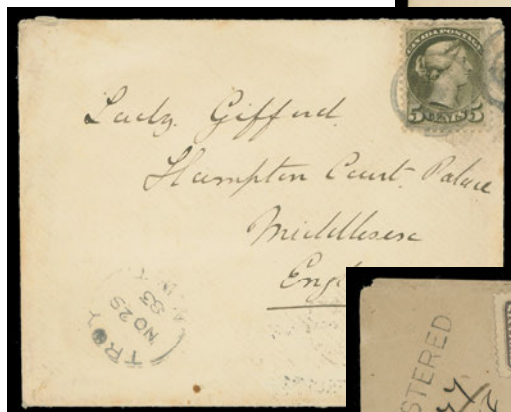 CANADA POSTAGE
5 CENTS 5
Lady Gifford
Hampton Court Palace
Middlesex
TROY
NO 29
83
STERED